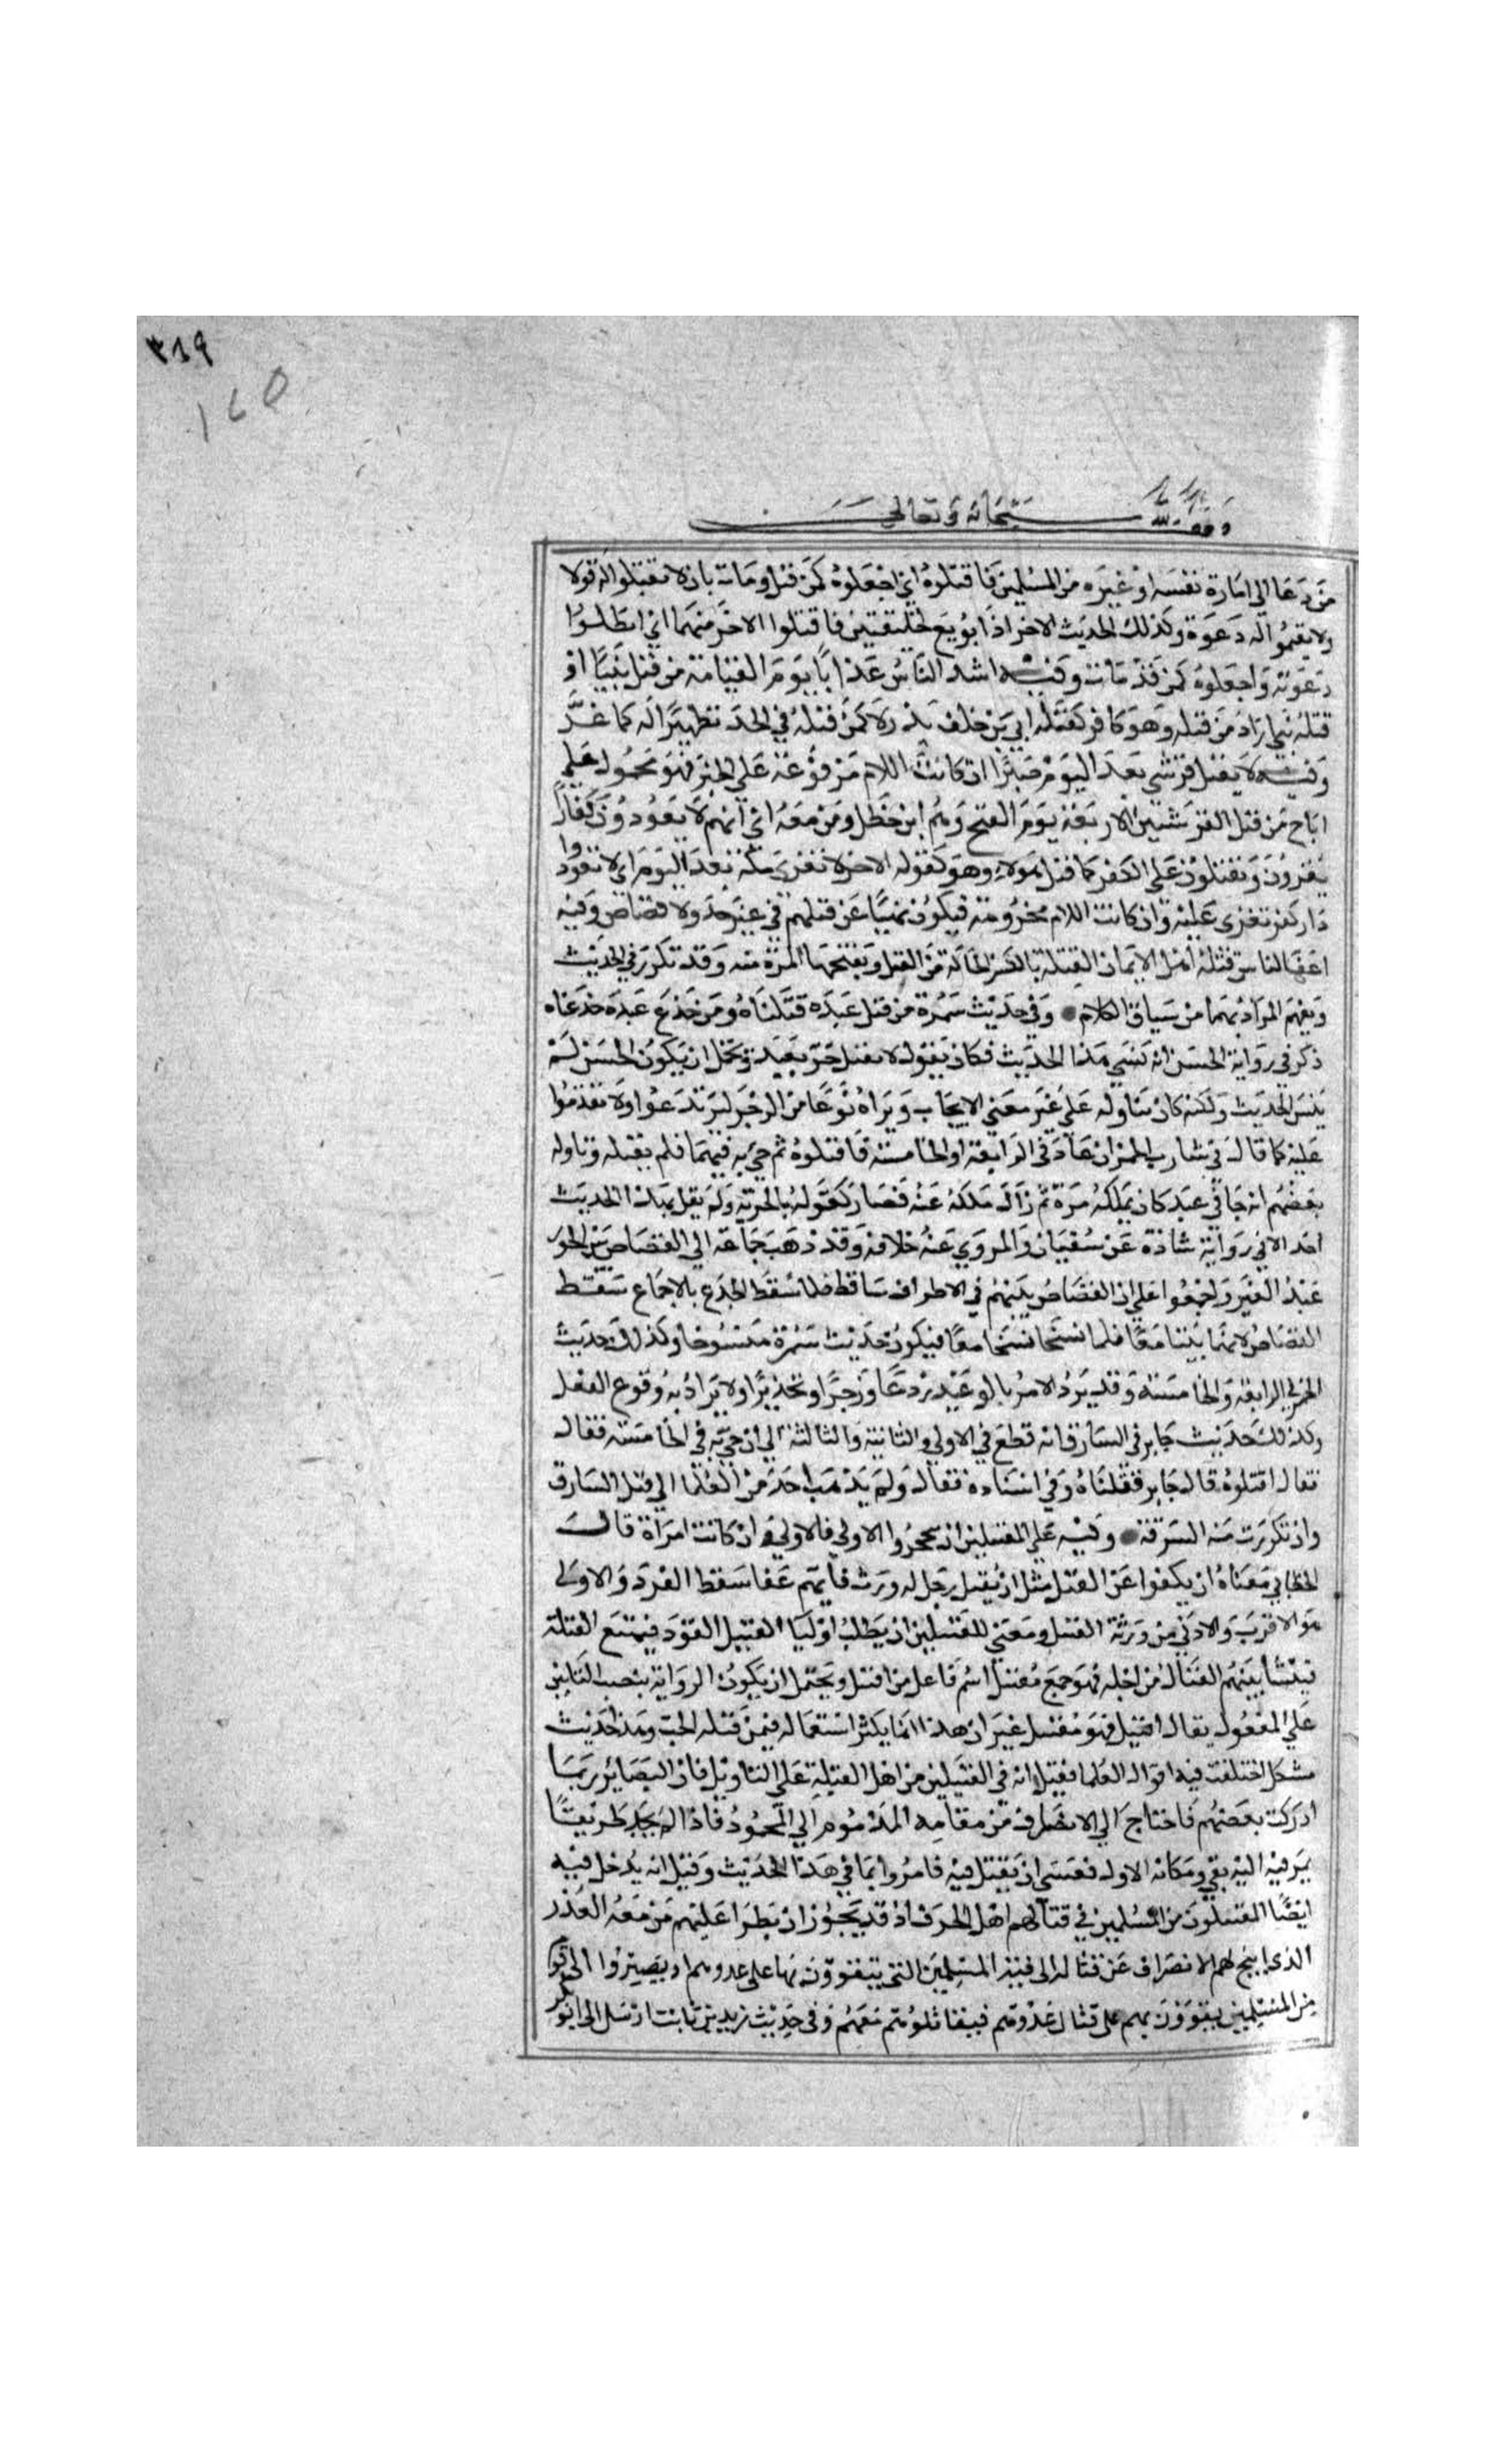 ٣١٩
١٤٥
وقف لله سبحانه وتعالى
من دعا الي امارة نفسه او غيره من المسلمين فاقتلوه اي اجعلوه كمن قتل ومات بان لا تقبلوا له قولا
ولا يقيموا له دعوة وكذلك الحديث الاخر اذا بويع لخليفتين فاقتلوا الاخر منهما اي ابطلوا
دعوته واجعلوه كمن قد مات وفيه اشد الناس عذابا يوم القيامة من قتل نبيا او
قتله نبي اراد من قتله وهو كافر كقتله ابي بن خلف يوم بدر لا كمن قتله في الحد تطهيرا له كماعز
وفيه لا يقتل قرشي بعد اليوم صبرا ان كانت اللام مرفوعة علي الخبر فهو محمول علي
اباح من قتل القرشيين الاربعة يوم الفتح وهم ابن خطل ومن معه اي انهم لا يعودون كفارا
يغزون ويقتلون علي الكفر كما قتل هولاء وهو كقوله الاخر لا تغزى مكة بعد اليوم اي لا تعود
دار كفر تغزى عليه وان كانت اللام مجزومة فيكون نهيا عن قتلهم في غير حد ولا قصاص وفيه
اعف الناس قتلة اهل الايمان القتلة بالكسر الحالة من القتل وبفتحها المرة منه وقد تكرر في الحديث
ويفهم المراد بهما من سياق الكلام وفي حديث سمرة من قتل عبده قتلناه ومن جدع عبده جدعناه
ذكر في رواية الحسن انه نسي هذا الحديث فكان يقول لا يقتل حر بعبد ويحتمل ان يكون الحسن لم
ينس الحديث ولكنه كان يتاوله علي غير معني الايجاب ويراه نوعا من الزجر ليرتدعوا ولا يقدموا
عليه كما قال في شارب الخمر ان عاد في الرابعة او الخامسة فاقتلوه ثم جيء به فيهما فلم يقتله وتاوله
بعضهم انه جا في عبد كان يملكه مرة ثم زال ملكه عنه فصار كفوا له بالحرية ولم يقل بهذا الحديث
احد الا في رواية شاذة عن سفيان والمروي عنه خلافه وقد ذهب جماعة الي القصاص بين الحر
عبد الغير واجمعوا علي ان القصاص بينهم في الاطراف ساقط فلما سقط الجدع بالاجماع سقط
القصاص لانهما ثبتا معا فلما نسخا نسخا معا فيكون حديث سمرة منسوخا وكذلك حديث
الخمر في الرابعة والخامسة وقد يرد الامر بالوعيد ردعا وزجرا وتحذيرا ولا يراد به وقوع الفعل
وكذلك حديث جابر في السارق انه قطع في الاولي والثانية والثالثة الي ان جيء به في الخامسة فقال
فقال اقتلوه قال جابر فقتلناه وفي اسناده فقال ولم يذهب احد من العلما الي قتل السارق
وان تكررت منه السرقة وفيه علي المقتتلين ان ينحجزوا الاولي فالاولي وان كانت امراة قال
الخطابي معناه ان يكفوا عن القتل مثل ان يقتل رجل له ورثة فايهم عفا سقط القود والاولي
هو الاقرب والادني من ورثة القتيل ومعني للمقتتلين ان يطلب اوليا القتيل القود فيمتنع القتلة
فينشا بينهم القتال من اجله فهو جمع مقتتل اسم فاعل من اقتتل ويحتمل ان يكون الرواية بنصب التاين
علي المفعول يقال اقتتل فهو مقتتل غير ان هذا انما يكثر استعماله فيمن قتله الحب وهذا حديث
مشكل اختلفت فيه اقوال العلما فقيل انه في المقتتلين من اهل القبلة علي التاويل فان البصائر ربما
ادركت بعضهم فاحتاج الي الانصراف من مقامه المذموم الي المحمود فاذا لم يجد طريقا
يمر فيه اليه بقي ومكانه الاول فعسي ان يقتل فيه فامروا بما في هذا الحديث وقيل انه يدخل فيه
ايضا المقتتلون من المسلمين في قتالهم اهل الحرب اذ قد يجوز ان يطرا عليهم من معه العذر
الذي ابيح لهم الانصراف عن قتاله الى فيئة المسلمين التي يتقوون بها على عدوهم او يصيروا الى قوم
من المسلمين يقوون بهم على قتال عدوهم فيقاتلونهم معهم وفي حديث زيد بن ثابت ارسل الى ابو بكر